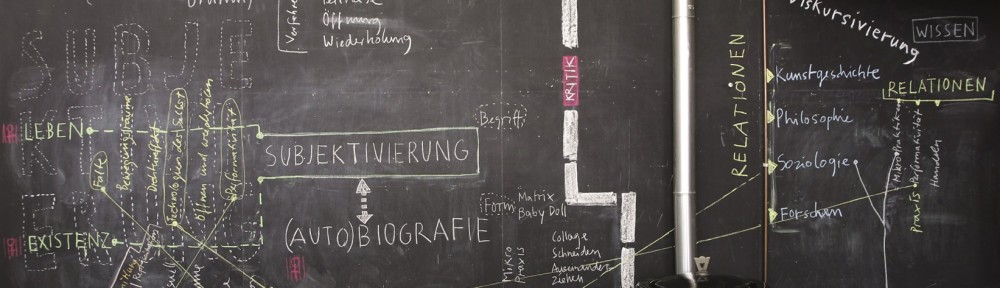 SUBJE
KT
LEBEN
EXISTENZ
Falte
Technologien des Selbst
Öffnen und
Performativität
Verfahren
Öffnung
Wiederholung
SUBJEKTIVIERUNG
(AUTO)BIOGRAFIE
Begriff
Form
Matrix
Baby Doll
Mikro
Praxis
Collage
Schneiden
Auseinander
ziehen
KRITIK
RELATIONEN
Diskursivierung
WISSEN
Kunstgeschichte
Philosophie
Soziologie
Forschen
RELATIONEN
Mikropraktiken
Praxis
Performativität
Handeln